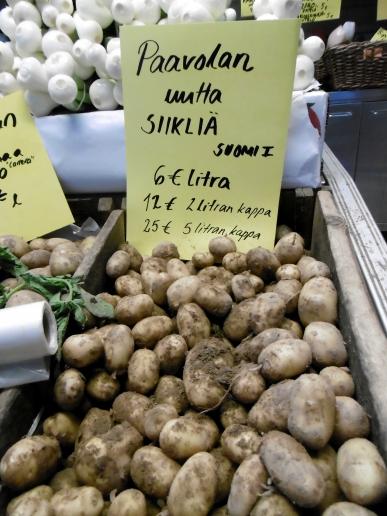 Paavolan
uutta
SIIKLIÄ
SUOMI I
6€ litra
12€ 2 litran kappa
25€ 5 litran kappa